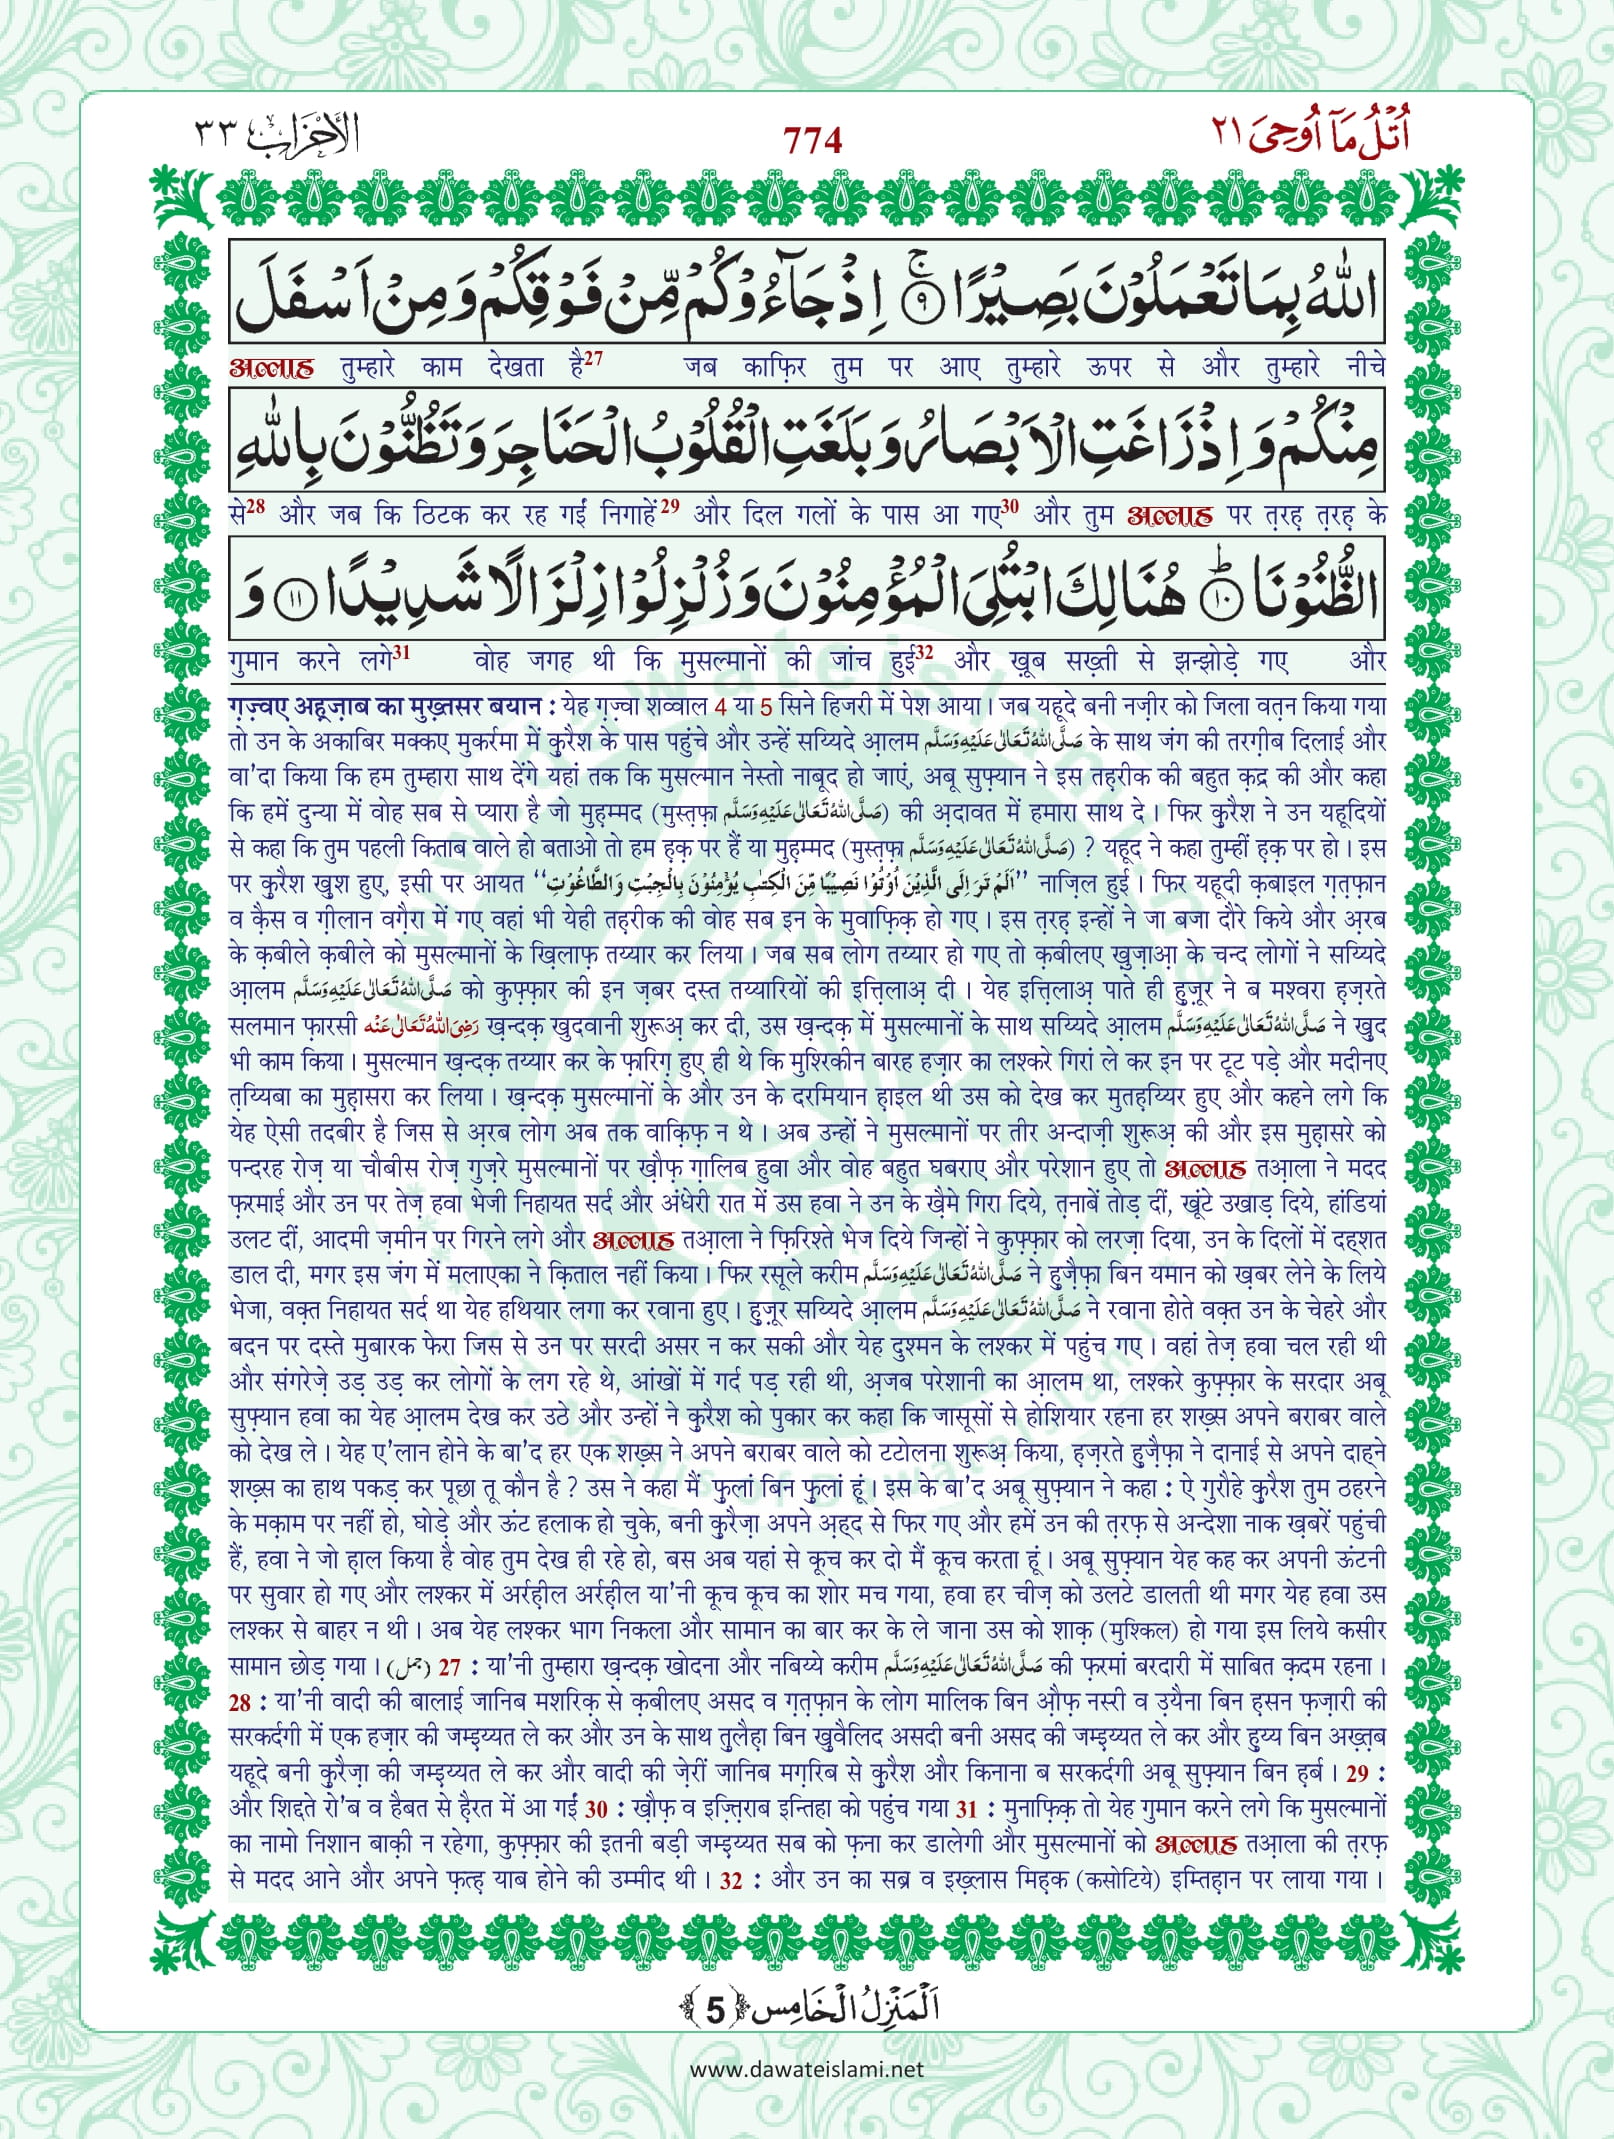 اُتْلُ مَاۤ اُوْحِیَ ٢١
774
الْاَحْزَاب ٣٣
اللّٰهُ بِمَا تَعْمَلُوْنَ بَصِیْرًاۚ(۹) اِذْ جَآءُوْكُمْ مِّنْ فَوْقِكُمْ وَ مِنْ اَسْفَلَ
अल्लाह तुम्हारे काम देखता है27 जब काफ़िर तुम पर आए तुम्हारे ऊपर से और तुम्हारे नीचे
مِنْكُمْ وَ اِذْ زَاغَتِ الْاَبْصَارُ وَ بَلَغَتِ الْقُلُوْبُ الْحَنَاجِرَ وَ تَظُنُّوْنَ بِاللّٰهِ
से28 और जब कि ठिटक कर रह गईं निगाहें29 और दिल गलों के पास आ गए30 और तुम अल्लाह पर त़रह़ त़रह़ के
الظُّنُوْنَاؕ(۱۰) هُنَالِكَ ابْتُلِیَ الْمُؤْمِنُوْنَ وَ زُلْزِلُوْا زِلْزَالًا شَدِیْدًا(۱۱) وَ
गुमान करने लगे31 वोह जगह थी कि मुसल्मानों की जांच हुई32 और ख़ूब सख़्ती से झन्झोड़े गए और
ग़ज़्वए अह़ज़ाब का मुख़्तसर बयान : येह ग़ज़्वा शव्वाल 4 या 5 सिने हिजरी में पेश आया । जब यहूदे बनी नज़ीर को जिला वत़न किया गया
तो उन के अकाबिर मक्कए मुकर्रमा में क़ुरैश के पास पहुंचे और उन्हें सय्यिदे आ़लम صَلَّی اللّٰهُ تَعَالٰی عَلَیْهِ وَسَلَّم के साथ जंग की तरग़ीब दिलाई और
वा'दा किया कि हम तुम्हारा साथ देंगे यहां तक कि मुसल्मान नेस्तो नाबूद हो जाएं, अबू सुफ़्यान ने इस तह़रीक की बहुत क़द्र की और कहा
कि हमें दुन्या में वोह सब से प्यारा है जो मुह़म्मद (मुस्त़फ़ा صَلَّی اللّٰهُ تَعَالٰی عَلَیْهِ وَسَلَّم) की अ़दावत में हमारा साथ दे । फिर क़ुरैश ने उन यहूदियों
से कहा कि तुम पहली किताब वाले हो बताओ तो हम ह़क़ पर हैं या मुह़म्मद (मुस्त़फ़ा صَلَّی اللّٰهُ تَعَالٰی عَلَیْهِ وَسَلَّم) ? यहूद ने कहा तुम्हीं ह़क़ पर हो । इस
पर क़ुरैश ख़ुश हुए, इसी पर आयत ‘‘اَلَمْ تَرَ اِلَی الَّذِیْنَ اُوْتُوْا نَصِیْبًا مِّنَ الْكِتٰبِ یُؤْمِنُوْنَ بِالْجِبْتِ وَ الطَّاغُوْتِ’’ नाज़िल हुई । फिर यहूदी क़बाइल ग़त़फ़ान
व क़ैस व ग़ीलान वग़ैरा में गए वहां भी येही तह़रीक की वोह सब इन के मुवाफ़िक़ हो गए । इस त़रह़ इन्हों ने जा बजा दौरे किये और अ़रब
के क़बीले क़बीले को मुसल्मानों के ख़िलाफ़ तय्यार कर लिया । जब सब लोग तय्यार हो गए तो क़बीलए ख़ुज़ाआ़ के चन्द लोगों ने सय्यिदे
आ़लम صَلَّی اللّٰهُ تَعَالٰی عَلَیْهِ وَسَلَّم को कुफ़्फ़ार की इन ज़बर दस्त तय्यारियों की इत्तिलाअ़ दी । येह इत्तिलाअ़ पाते ही हुज़ूर ने ब मश्वरा ह़ज़रते
सलमान फ़ारसी رَضِیَ اللّٰهُ تَعَالٰی عَنْه ख़न्दक़ खुदवानी शुरूअ़ कर दी, उस ख़न्दक़ में मुसल्मानों के साथ सय्यिदे आ़लम صَلَّی اللّٰهُ تَعَالٰی عَلَیْهِ وَسَلَّم ने ख़ुद
भी काम किया । मुसल्मान ख़न्दक़ तय्यार कर के फ़ारिग़ हुए ही थे कि मुश्रिकीन बारह हज़ार का लश्करे गिरां ले कर इन पर टूट पड़े और मदीनए
त़य्यिबा का मुह़ासरा कर लिया । ख़न्दक़ मुसल्मानों के और उन के दरमियान ह़ाइल थी उस को देख कर मुतह़य्यिर हुए और कहने लगे कि
येह ऐसी तदबीर है जिस से अ़रब लोग अब तक वाक़िफ़ न थे । अब उन्हों ने मुसल्मानों पर तीर अन्दाज़ी शुरूअ़ की और इस मुह़ासरे को
पन्दरह रोज़ या चौबीस रोज़ गुज़रे मुसल्मानों पर ख़ौफ़ ग़ालिब हुवा और वोह बहुत घबराए और परेशान हुए तो अल्लाह तआ़ला ने मदद
फ़रमाई और उन पर तेज़ हवा भेजी निहायत सर्द और अंधेरी रात में उस हवा ने उन के ख़ैमे गिरा दिये, त़नाबें तोड़ दीं, खूंटे उखाड़ दिये, हांडियां
उलट दीं, आदमी ज़मीन पर गिरने लगे और अल्लाह तआ़ला ने फ़िरिश्ते भेज दिये जिन्हों ने कुफ़्फ़ार को लरज़ा दिया, उन के दिलों में दह्शत
डाल दी, मगर इस जंग में मलाएका ने क़िताल नहीं किया । फिर रसूले करीम صَلَّی اللّٰهُ تَعَالٰی عَلَیْهِ وَسَلَّم ने ह़ुज़ैफ़ा बिन यमान को ख़बर लेने के लिये
भेजा, वक़्त निहायत सर्द था येह हथियार लगा कर रवाना हुए । हुज़ूर सय्यिदे आ़लम صَلَّی اللّٰهُ تَعَالٰی عَلَیْهِ وَسَلَّم ने रवाना होते वक़्त उन के चेहरे और
बदन पर दस्ते मुबारक फेरा जिस से उन पर सरदी असर न कर सकी और येह दुश्मन के लश्कर में पहुंच गए । वहां तेज़ हवा चल रही थी
और संगरेज़े उड़ उड़ कर लोगों के लग रहे थे, आंखों में गर्द पड़ रही थी, अ़जब परेशानी का आ़लम था, लश्करे कुफ़्फ़ार के सरदार अबू
सुफ़्यान हवा का येह आ़लम देख कर उठे और उन्हों ने क़ुरैश को पुकार कर कहा कि जासूसों से होशियार रहना हर शख़्स अपने बराबर वाले
को देख ले । येह ए'लान होने के बा'द हर एक शख़्स ने अपने बराबर वाले को टटोलना शुरूअ़ किया, ह़ज़रते ह़ुज़ैफ़ा ने दानाई से अपने दाहने
शख़्स का हाथ पकड़ कर पूछा तू कौन है ? उस ने कहा मैं फ़ुलां बिन फ़ुलां हूं । इस के बा'द अबू सुफ़्यान ने कहा : ऐ गुरौहे क़ुरैश तुम ठहरने
के मक़ाम पर नहीं हो, घोड़े और ऊंट हलाक हो चुके, बनी क़ुरैज़ा अपने अ़ह्द से फिर गए और हमें उन की त़रफ़ से अन्देशा नाक ख़बरें पहुंची
हैं, हवा ने जो ह़ाल किया है वोह तुम देख ही रहे हो, बस अब यहां से कूच कर दो मैं कूच करता हूं । अबू सुफ़्यान येह कह कर अपनी ऊंटनी
पर सुवार हो गए और लश्कर में अर्रह़ील अर्रह़ील या'नी कूच कूच का शोर मच गया, हवा हर चीज़ को उलटे डालती थी मगर येह हवा उस
लश्कर से बाहर न थी । अब येह लश्कर भाग निकला और सामान का बार कर के ले जाना उस को शाक़ (मुश्किल) हो गया इस लिये कसीर
सामान छोड़ गया । (جمل) 27 : या'नी तुम्हारा ख़न्दक़ खोदना और नबिय्ये करीम صَلَّی اللّٰهُ تَعَالٰی عَلَیْهِ وَسَلَّم की फ़रमां बरदारी में साबित क़दम रहना ।
28 : या'नी वादी की बालाई जानिब मशरिक़ से क़बीलए असद व ग़त़फ़ान के लोग मालिक बिन औ़फ़ नस्री व उ़यैना बिन ह़सन फ़ज़ारी की
सरकर्दगी में एक हज़ार की जम्इ़य्यत ले कर और उन के साथ त़ुलैह़ा बिन ख़ुवैलिद असदी बनी असद की जम्इ़य्यत ले कर और ह़ुय्य बिन अख़्त़ब
यहूदे बनी क़ुरैज़ा की जम्इ़य्यत ले कर और वादी की ज़ेरीं जानिब मग़रिब से क़ुरैश और किनाना ब सरकर्दगी अबू सुफ़्यान बिन ह़र्ब । 29 :
और शिद्दते रो'ब व हैबत से ह़ैरत में आ गईं 30 : ख़ौफ़ व इज़्त़िराब इन्तिहा को पहुंच गया 31 : मुनाफ़िक़ तो येह गुमान करने लगे कि मुसल्मानों
का नामो निशान बाक़ी न रहेगा, कुफ़्फ़ार की इतनी बड़ी जम्इ़य्यत सब को फ़ना कर डालेगी और मुसल्मानों को अल्लाह तआ़ला की त़रफ़
से मदद आने और अपने फ़त्ह़ याब होने की उम्मीद थी । 32 : और उन का सब्र व इख़्लास मिह़क (कसोटिये) इम्तिह़ान पर लाया गया ।
اَلْمَنْزِلُ الْخَامِس ﴿5﴾
www.dawateislami.net